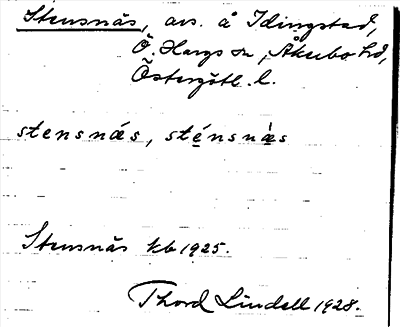 Stensnäs, avs. å Idingstad,
Ö. Hargs sn, Åkerbo hd,
Östergötl. l.
stensnäs, sténsnä̀s
Stensnäs kb 1925.
Thord Lindell 1928.